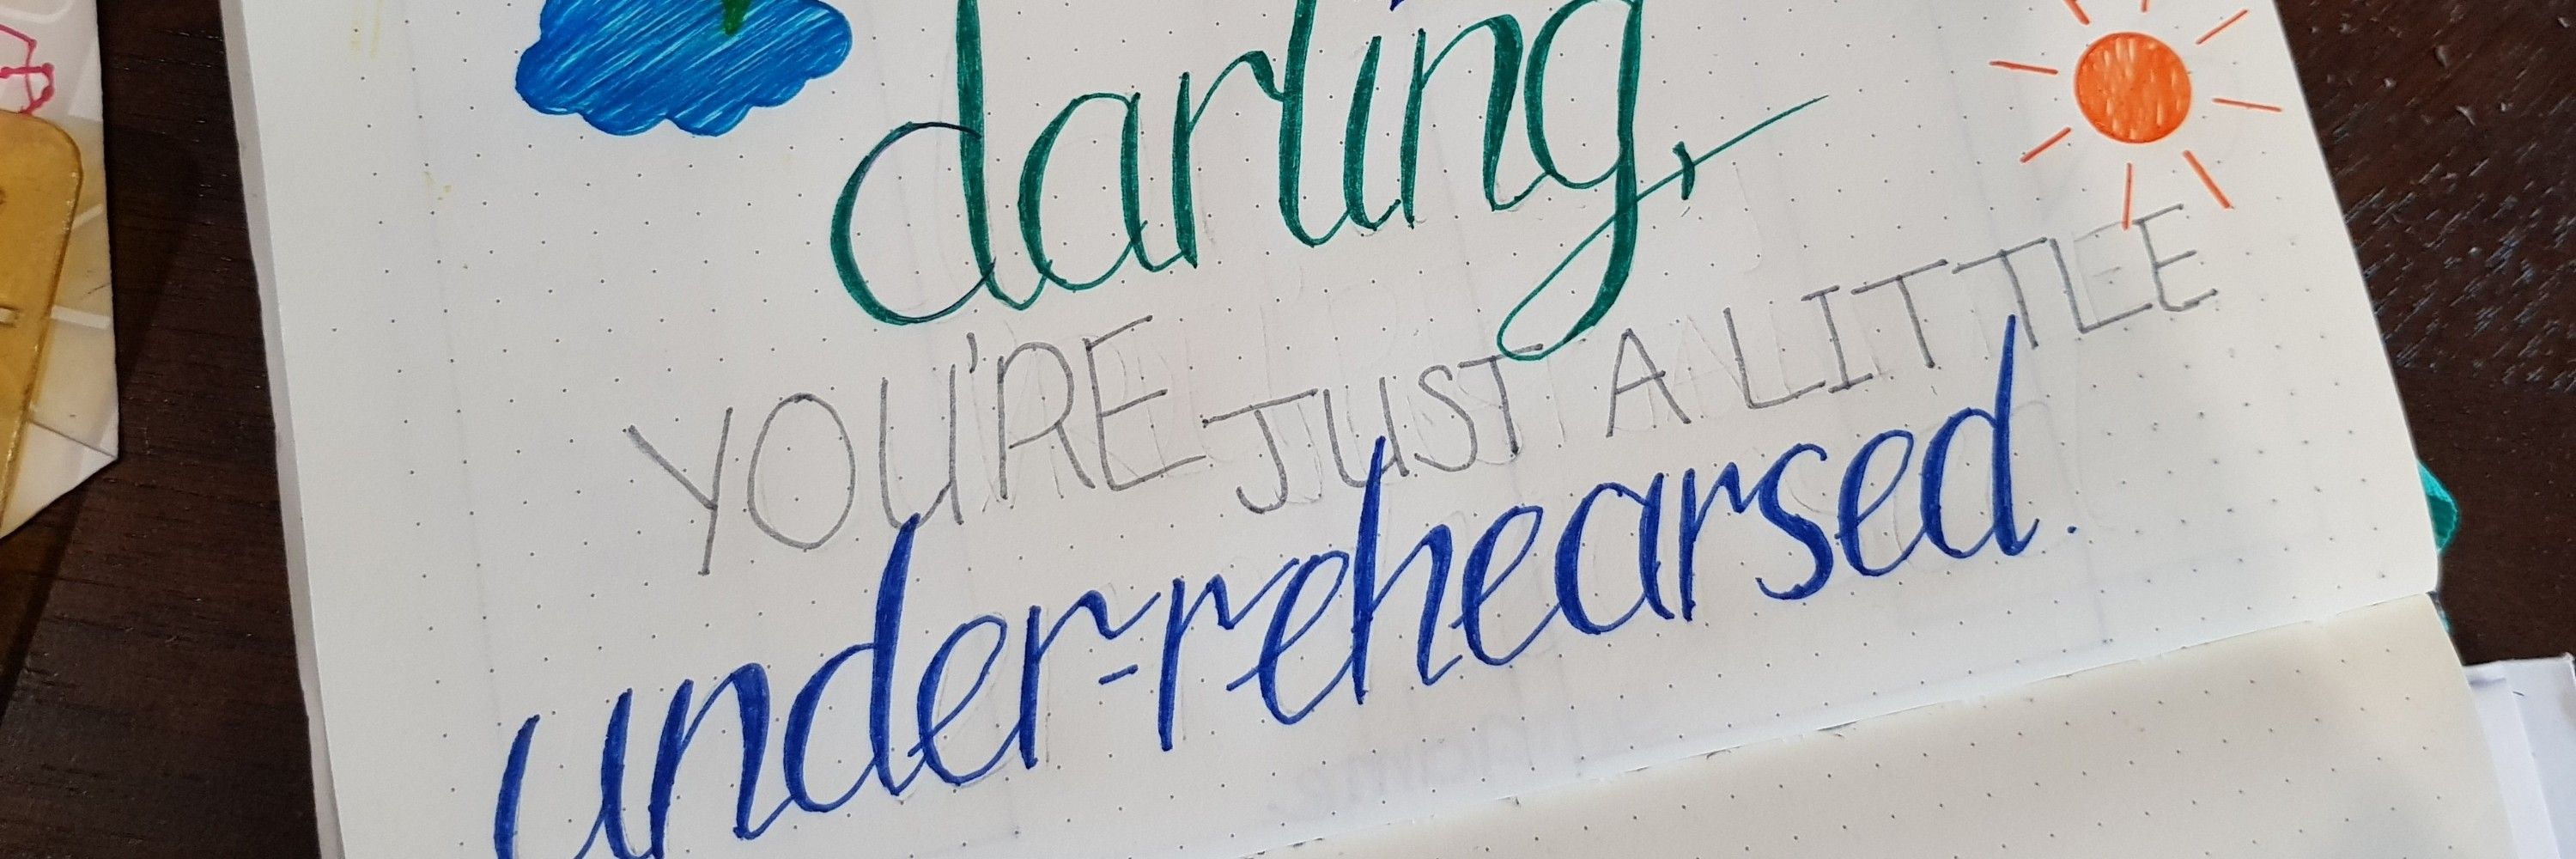 darling,
YOU'RE JUST A LITTLE
under-rehearsed.